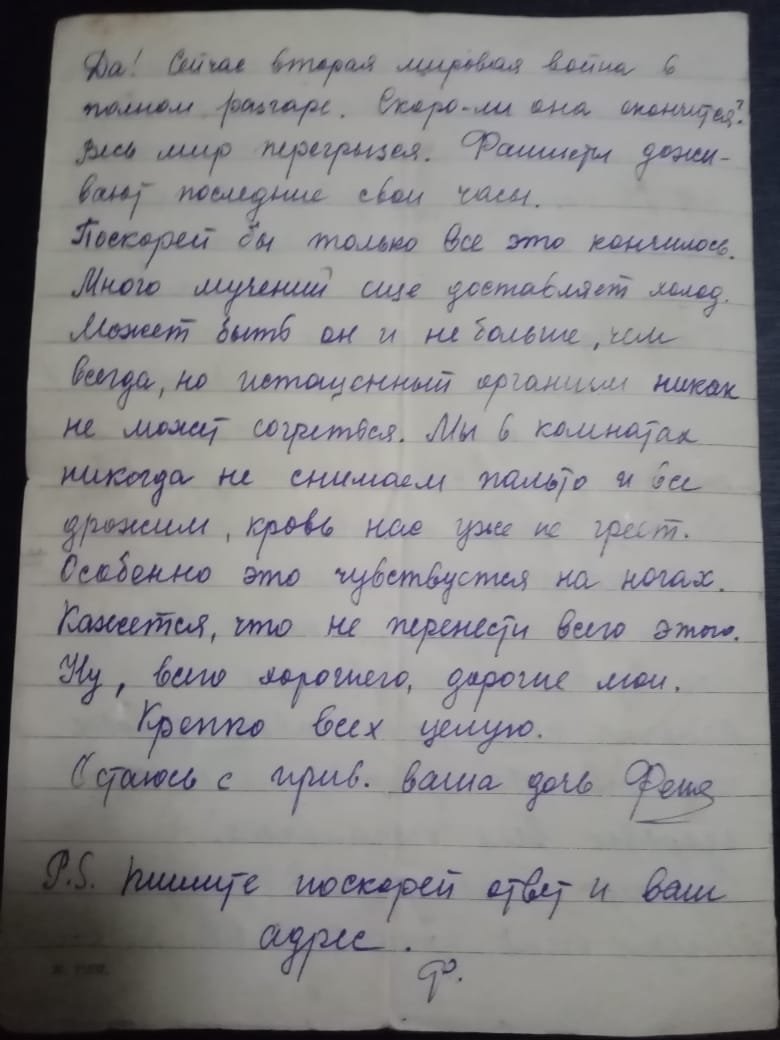 Да! Сейчас вторая мировая война в
полном разгаре. Скоро-ли она окончится?
Весь мир перегрызся. Фашисты дожи-
вают последние свои часы.
Поскорей бы только все это кончилось.
Много мучений еще доставляет холод.
Может быть он и не больше, чем
всегда, но истощенный организм никак
не может согреться. Мы в комнатах
никогда не снимаем пальто и все
дрожим, кровь нас уже не греет.
Особенно это чувствуется на ногах.
Кажется, что не перенести всего этого.
Ну, всего хорошего, дорогие мои.
Крепко всех целую.
Остаюсь с прив. ваша дочь Феня
P.S. Пишите поскорей ответ и ваш
адрес.
Ф.